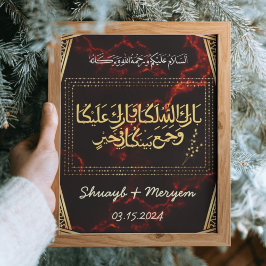 السلام عليكم ورحمة الله وبركاته
بارك الله لكما وبارك عليكما
وجمع بينكما في خير
Shuayb + Meryem
03.15.2024